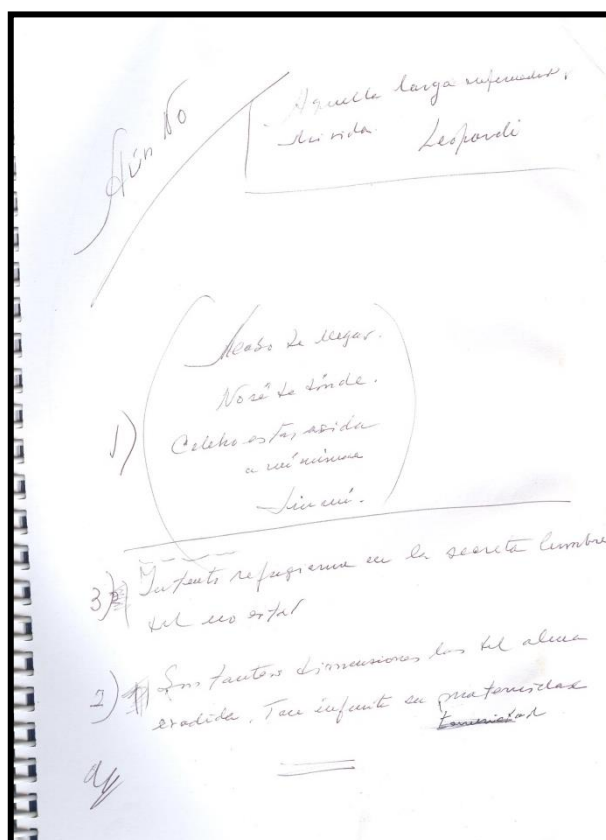 Aún No
Aquella larga enfermedad,
mi vida. Leopardi
Acabo de llegar.
No sé de dónde.
Celebro estar asida
a mí misma
sin mí.
1)
3) Intento refugiarme en la secreta lumbre
del no estar
2) Son tantas dimensiones las del alma
evadida. Tan infinita en